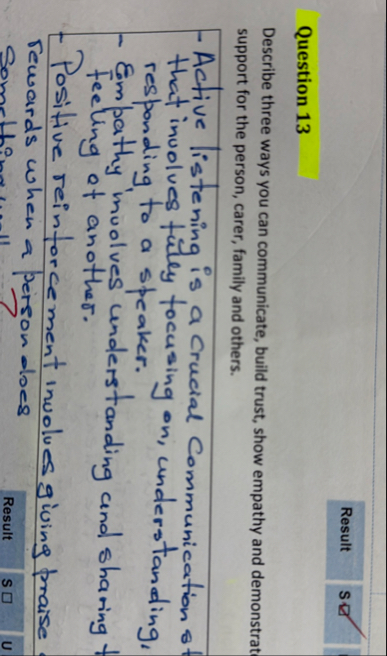 Question 13
Result S ☑
Describe three ways you can communicate, build trust, show empathy and demonstrat
support for the person, carer, family and others.
- Active listening is a crucial communication s
that involves fully focusing on, understanding,
responding to a speaker.
- Empathy involves understanding and sharing t
feeling of another.
- Positive reinforcement involves giving praise
rewards when a person does
something well
Result S ☐ U